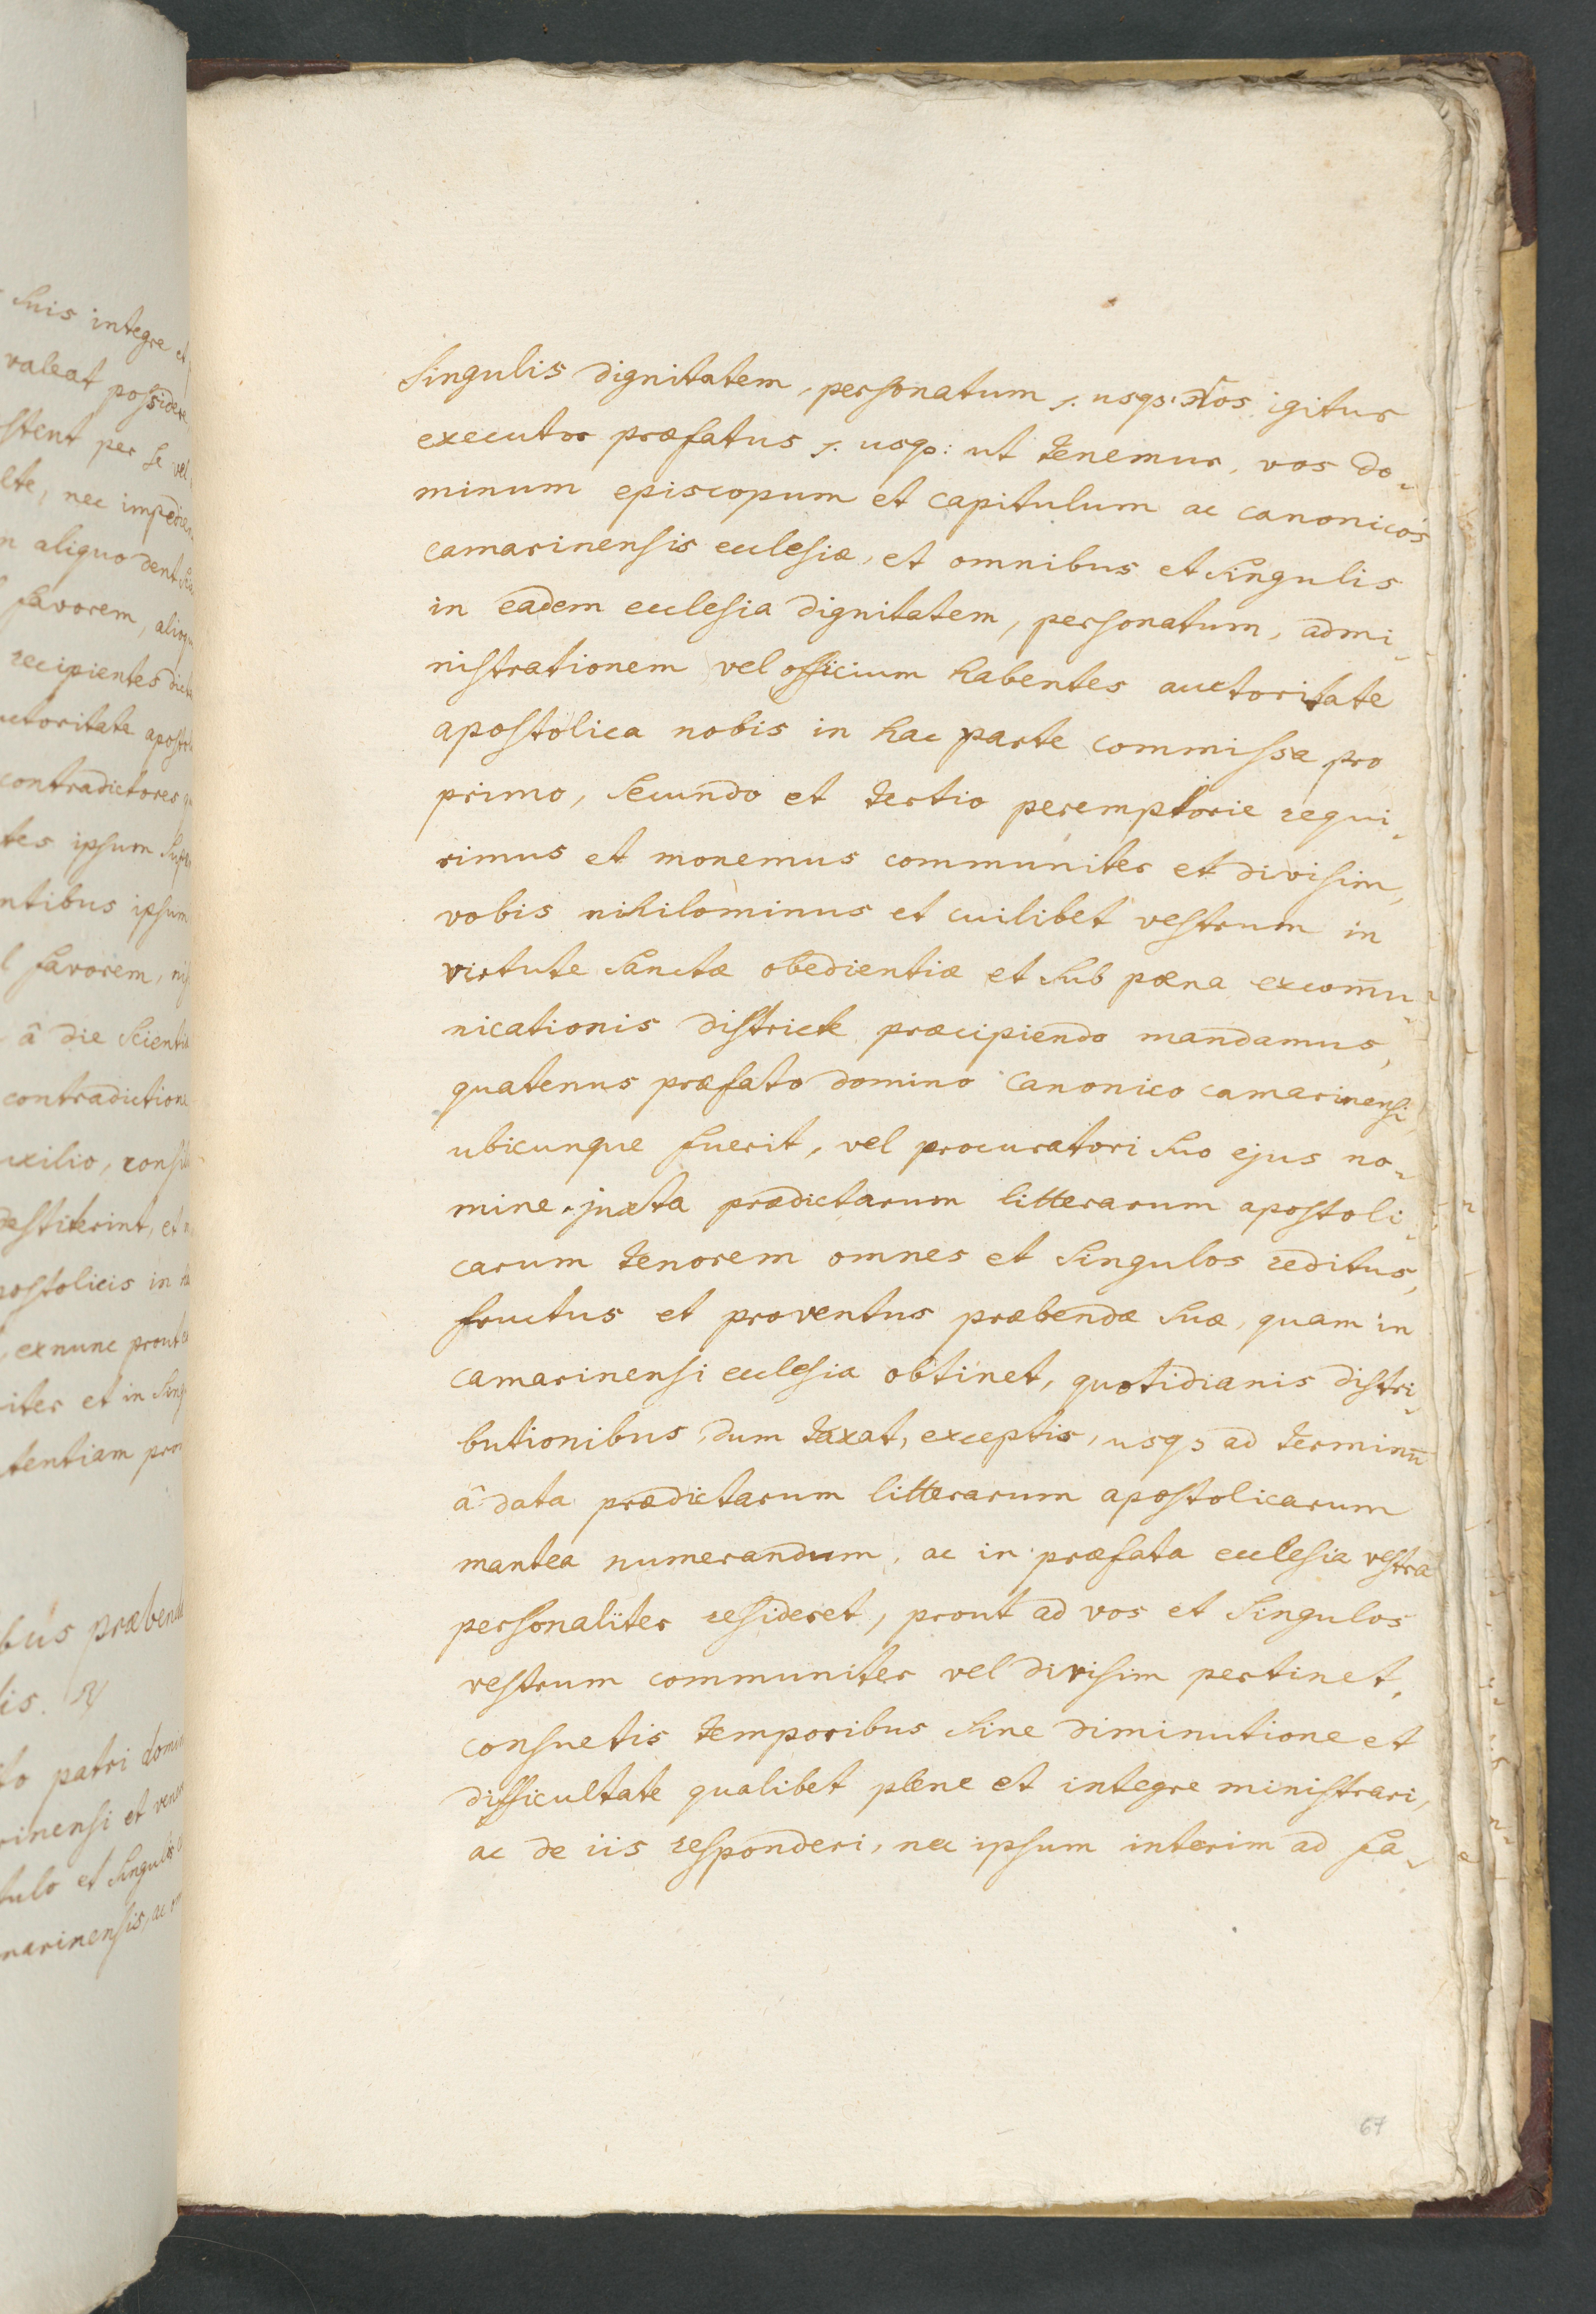 suis integre et
valeat possidere
stent per se vel
ete, nec impedien
aliquo dent
favorem, alioqu
recipientes dict
uctoritate apostol
contradictores
tes ipsum super
ntibus ipsum
l favorem, nis
â die scientiæ
contradictione
uxilio, consil
destiterint, et
postolicis in ha
, exnunc prout
iter et in sing
tentiam pro
bus præbend
lis.
to patri domin
rinensi et vener
tulo et singulis
marinensis, ac
singulis dignitatem, personatum /. usq3: Nos igitur
executor præfatus /. usq3: ut tenemur, vos do-
minum episcopum et capitulum ac canonicos
camarinensis ecclesiæ, et omnibus et singulis
in eadem ecclesia dignitatem, personatum, admi-
nistrationem vel officium habentes auctoritate
apostolica nobis in hac parte commissa pro
primo, secundo et tertio peremptorie requi-
rimus et monemus communiter et divisim,
vobis nihilominus et cuilibet vestrum in
virtute sanctæ obedientiæ et sub pœna excom̄u-
nicationis districte præcipiendo mandamus,
quatenus præfato domino canonico camarinensi,
ubicunque fuerit, vel procuratori suo ejus no-
mine, juxta prædictarum litterarum apostoli-
carum tenorem omnes et singulos reditus,
fructus et proventus præbendæ suæ, quam in
camarinensi ecclesia obtinet, quotidianis distri-
butionibus, dum taxat, exceptis, usq3 ad terminū
â data prædictarum litterarum apostolicarum
mantea numerandum, ac in præfata ecclesia vestra
personaliter resideret, prout ad vos et singulos
vestrum communiter vel divisim pertinet,
consuetis temporibus sine diminutione et
difficultate qualibet plene et integre ministrari,
ac de iis responderi, nec ipsum interim ad fa-
67